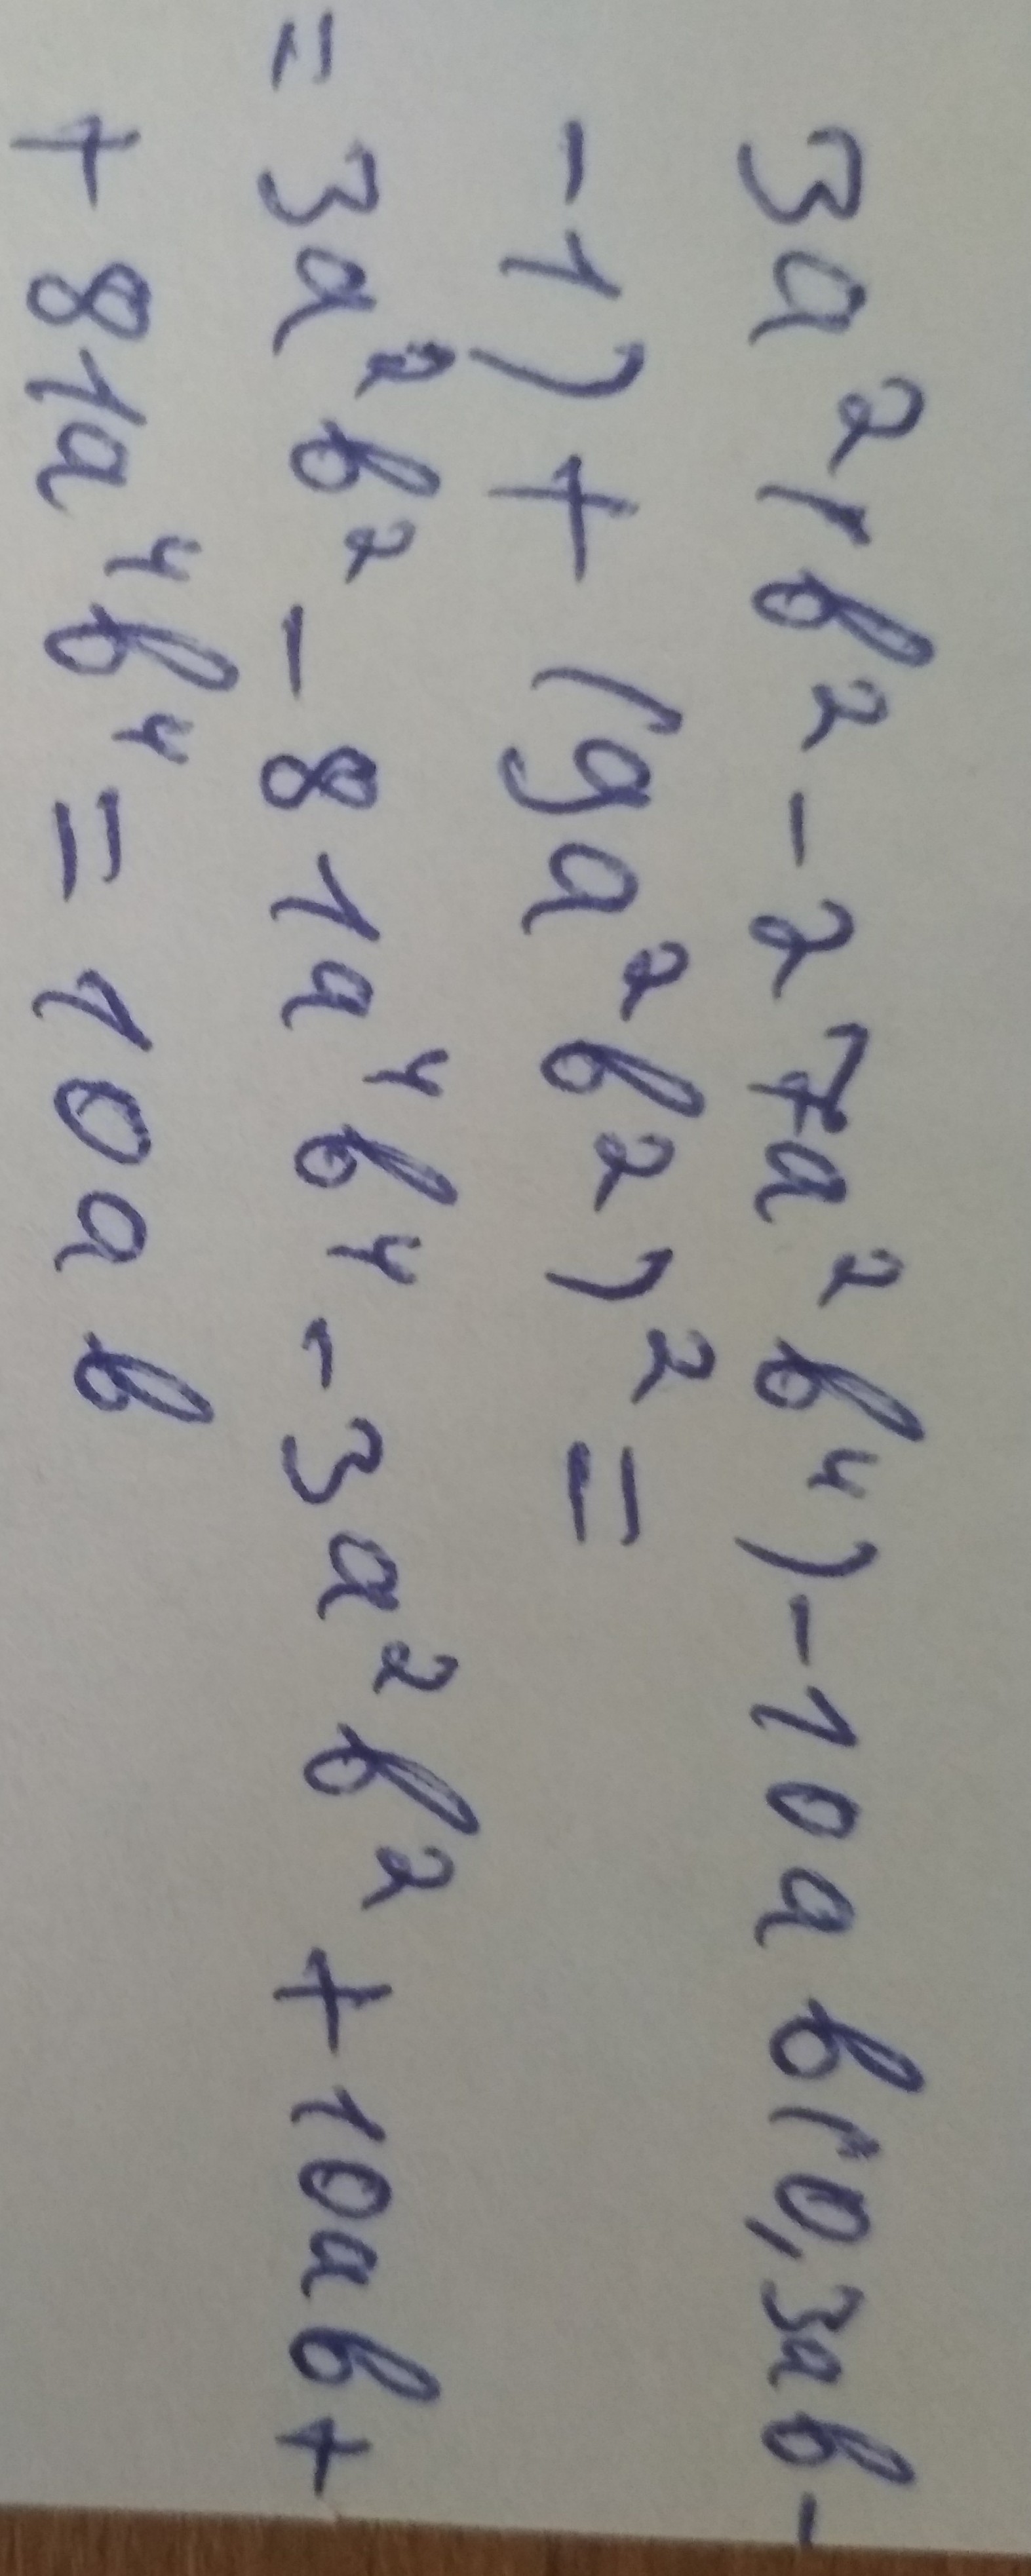 3a²(в² - 27a²в⁴) - 10aв(0,3aв -
- 1) + (9a²в²)² =
= 3a²в² - 81a⁴в⁴ - 3a²в² + 10aв +
+ 81a⁴в⁴ = 10aв